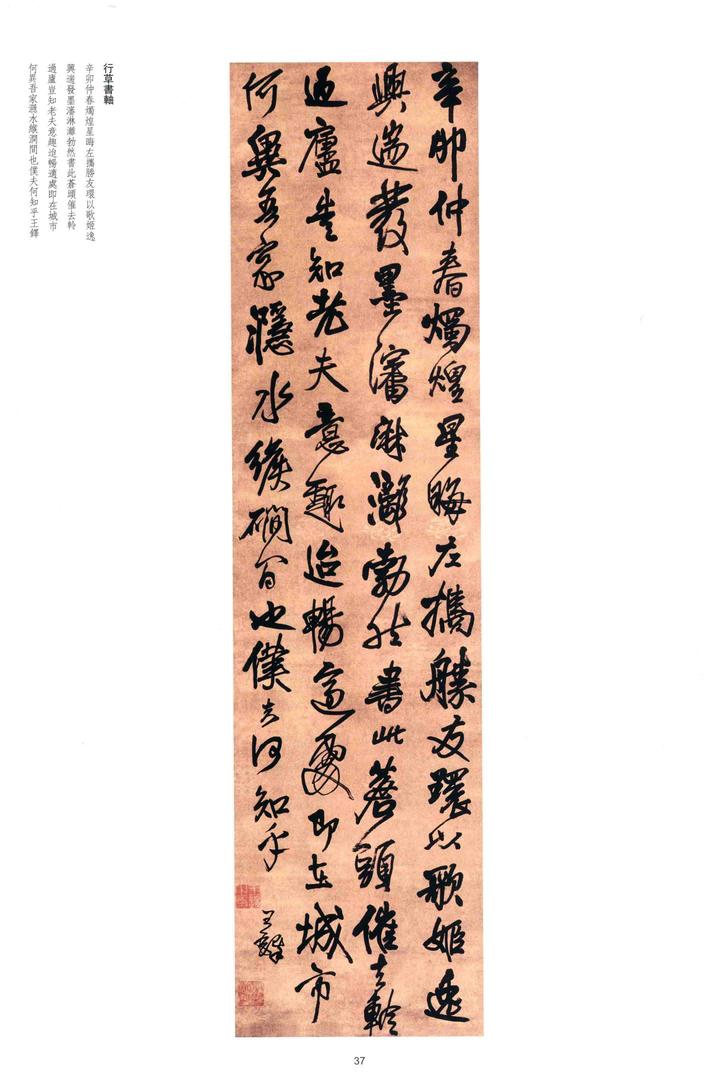 辛卯仲春燭煌星晦左攜勝友環以歌姬逸
興遄發墨瀋淋灕勃然書此蒼頭催去軨
過廬豈知老夫意趣迨暢適處即在城市
何異吾家濦水緱磵間也僕夫何知乎
王鐸
行草書軸
辛卯仲春燭煌星晦左攜勝友環以歌姬逸
興遄發墨瀋淋灕勃然書此蒼頭催去軨
過廬豈知老夫意趣迨暢適處即在城市
何異吾家濦水緱澗間也僕夫何知乎王鐸
37